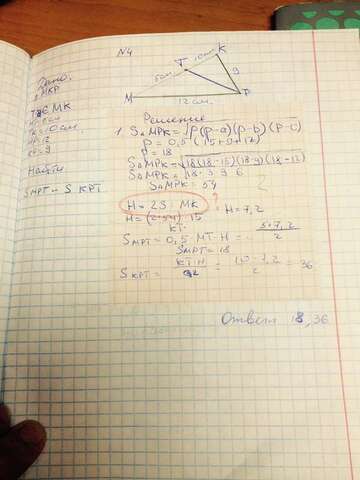 N4
Дано:
MKP
T∈MK
TK=10см
Найти
S MPT - S KPT
5см
10см
K
T
9
M
P
12 см
Решение
1 S△MPK = √p(p-a)(p-b)(p-c)
P = 0,5 (15+9+12)
P = 18
S△MPK = √18(18-15)(18-9)(18-12)
S△MPK = √18·3·9·6
S△MPK = 54
H = 2S : MK ?
H = (2·54) : 15 H = 7,2
S MPT = 0,5 MT · H = 5·7,2/2
S MPT = 18
S KPT = KT·H/2 = 10·7,2/2 = 36
Ответ 18, 36